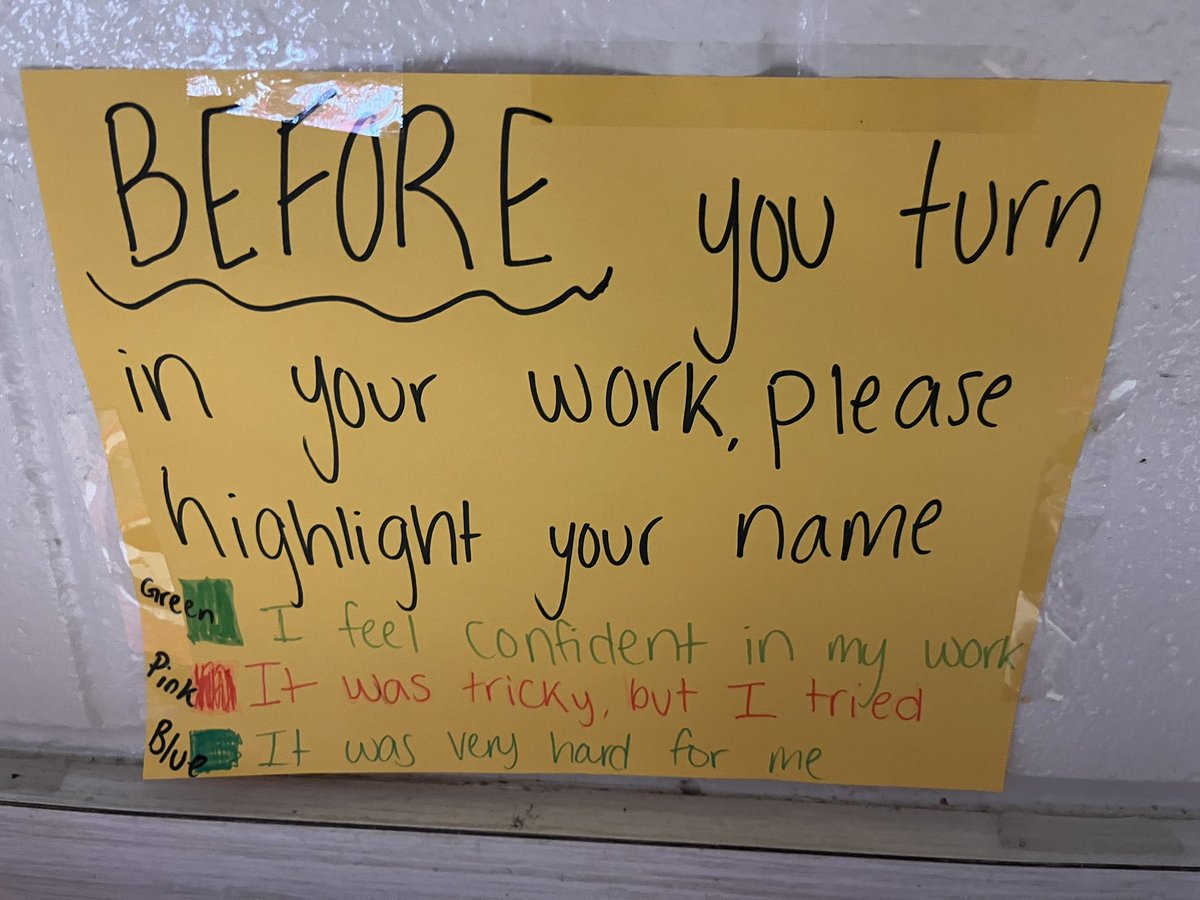 BEFORE you turn
in your work, please
highlight your name
Green I feel confident in my work
Pink It was tricky, but I tried
Blue It was very hard for me